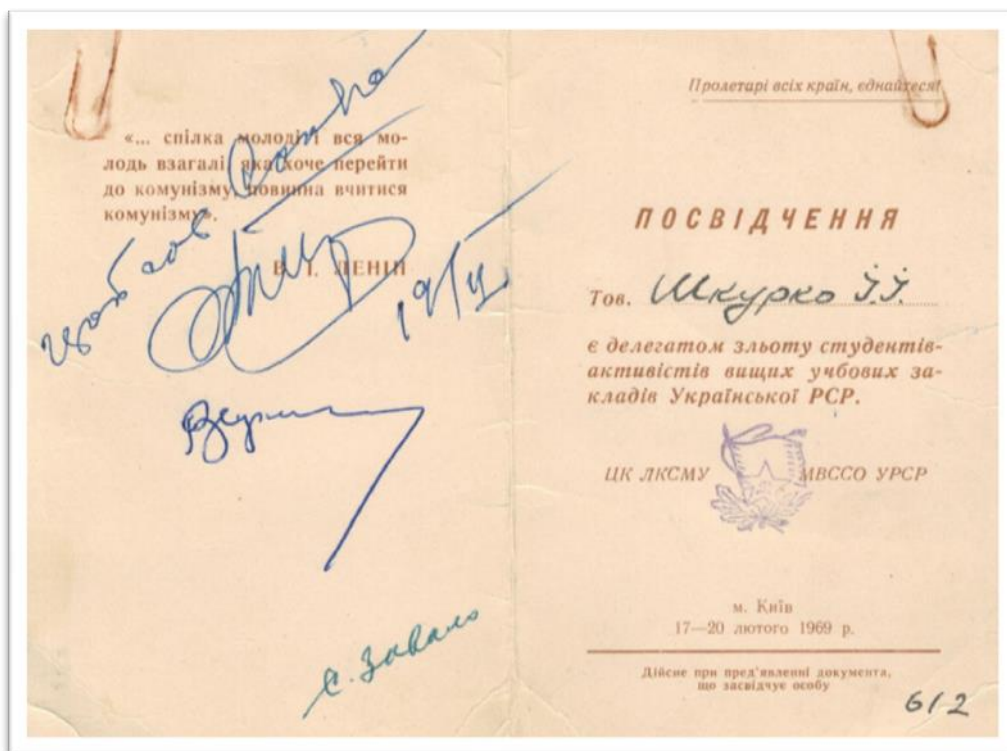 «... спілка молоді і вся мо-
лодь взагалі, яка хоче перейти
до комунізму, повинна вчитися
комунізму».
В. І. ЛЕНІН
19/ІІ
С. Завало
Пролетарі всіх країн, єднайтеся!
ПОСВІДЧЕННЯ
Тов. Шкурко І.І.
є делегатом зльоту студентів-
активістів вищих учбових за-
кладів Української РСР.
ЦК ЛКСМУ МВССО УРСР
м. Київ
17—20 лютого 1969 р.
Дійсне при пред'явленні документа,
що засвідчує особу
612